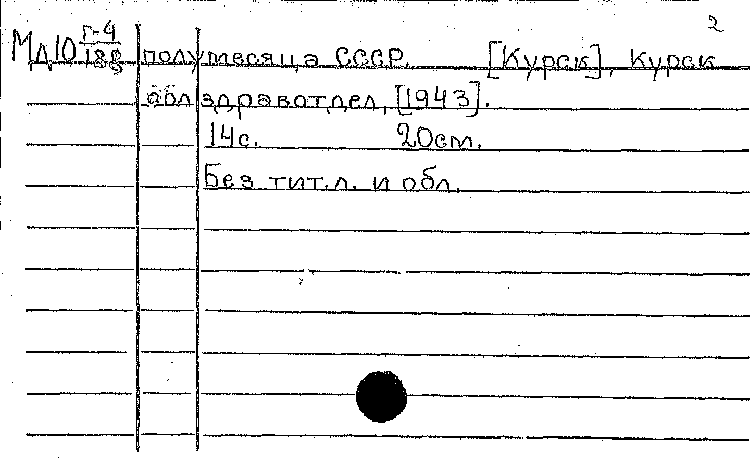 2
МД10 Г-4/188 полумесяца СССР. [Курск], Курск
обл здравотдел, [1943].
14с. 20см.
Без тит.л. и обл.